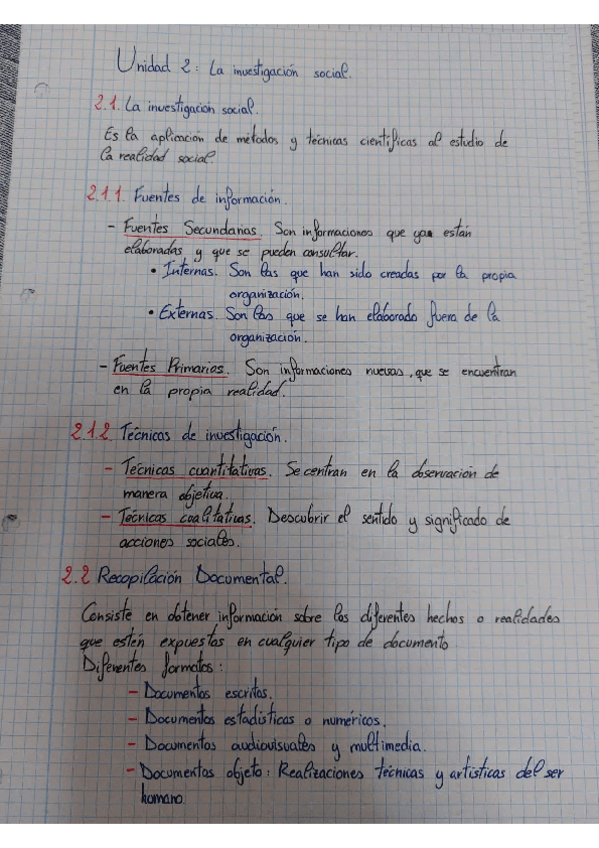 Unidad 2: La investigación social.
2.1. La investigación social.
Es la aplicación de métodos y técnicas científicas al estudio de
la realidad social.
2.1.1. Fuentes de información.
- Fuentes Secundarias. Son informaciones que ya están
elaboradas y que se pueden consultar.
• Internas. Son las que han sido creadas por la propia
organización.
• Externas. Son las que se han elaborado fuera de la
organización.
- Fuentes Primarias. Son informaciones nuevas, que se encuentran
en la propia realidad.
2.1.2. Técnicas de investigación.
- Técnicas cuantitativas. Se centran en la observación de
manera objetiva.
- Técnicas cualitativas. Descubrir el sentido y significado de
acciones sociales.
2.2 Recopilación Documental.
Consiste en obtener información sobre los diferentes hechos o realidades
que estén expuestas en cualquier tipo de documento
Diferentes formatos:
- Documentos escritos.
- Documentos estadísticas o numéricos.
- Documentos audiovisuales y multimedia.
- Documentos objeto: Realizaciones técnicas y artísticas del ser
humano